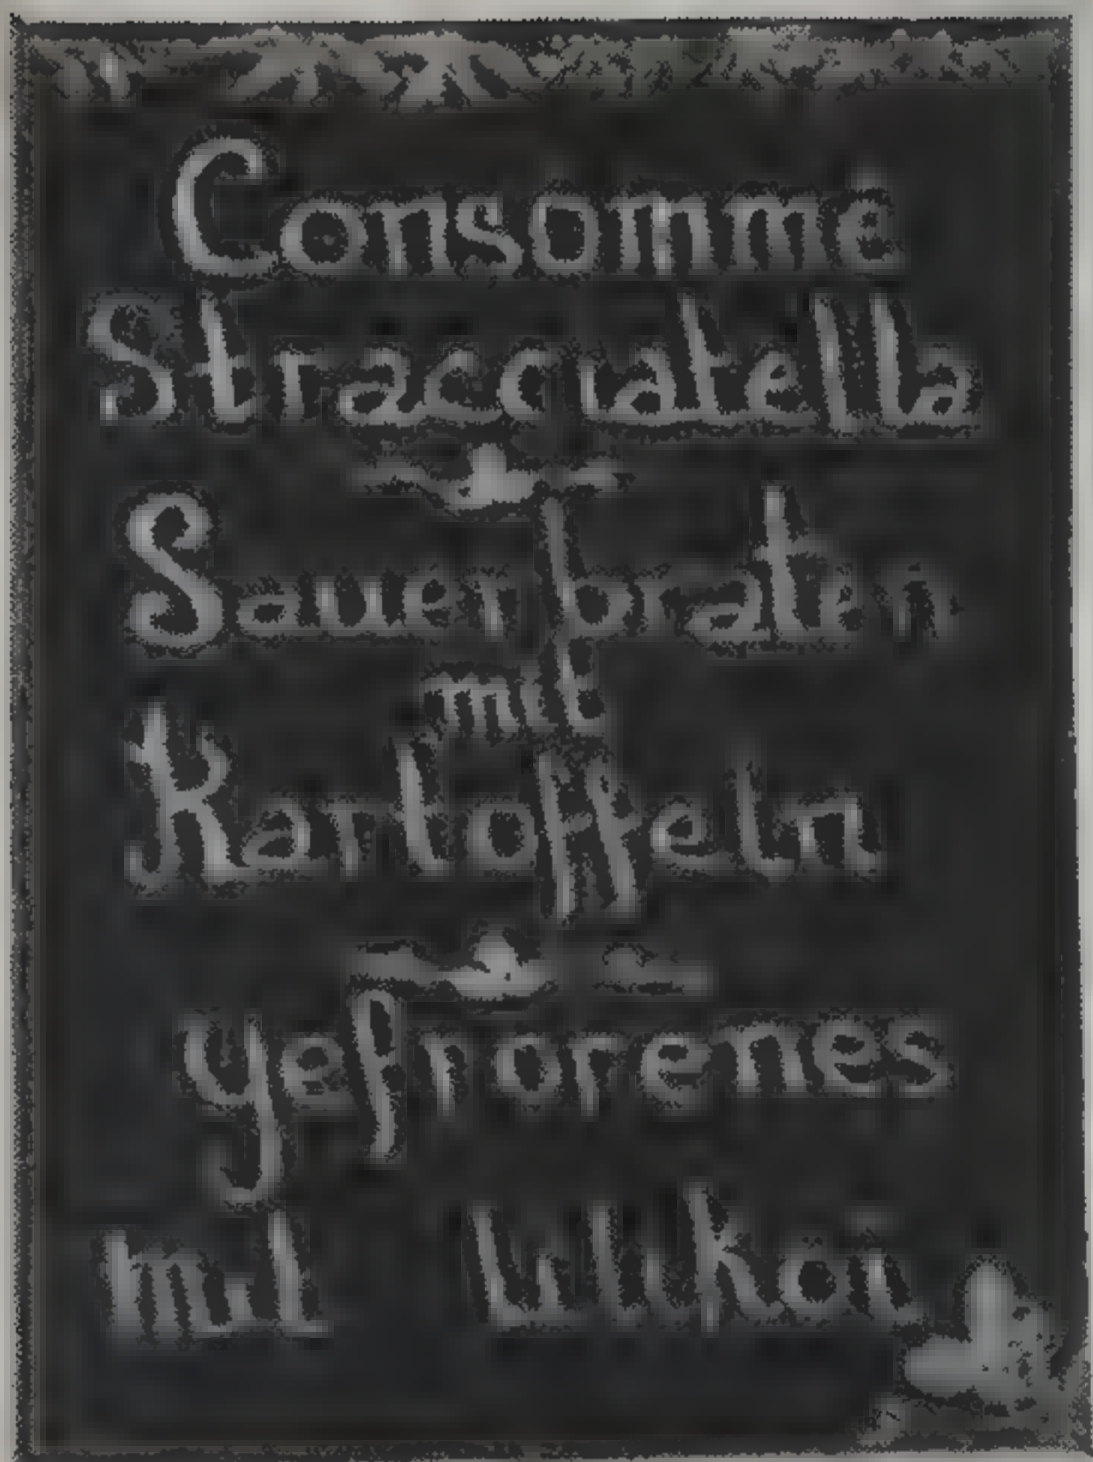 Consommé
Stracciatella
Sauerbraten
mit
Kartoffeln
Gefrorenes
mit Likör